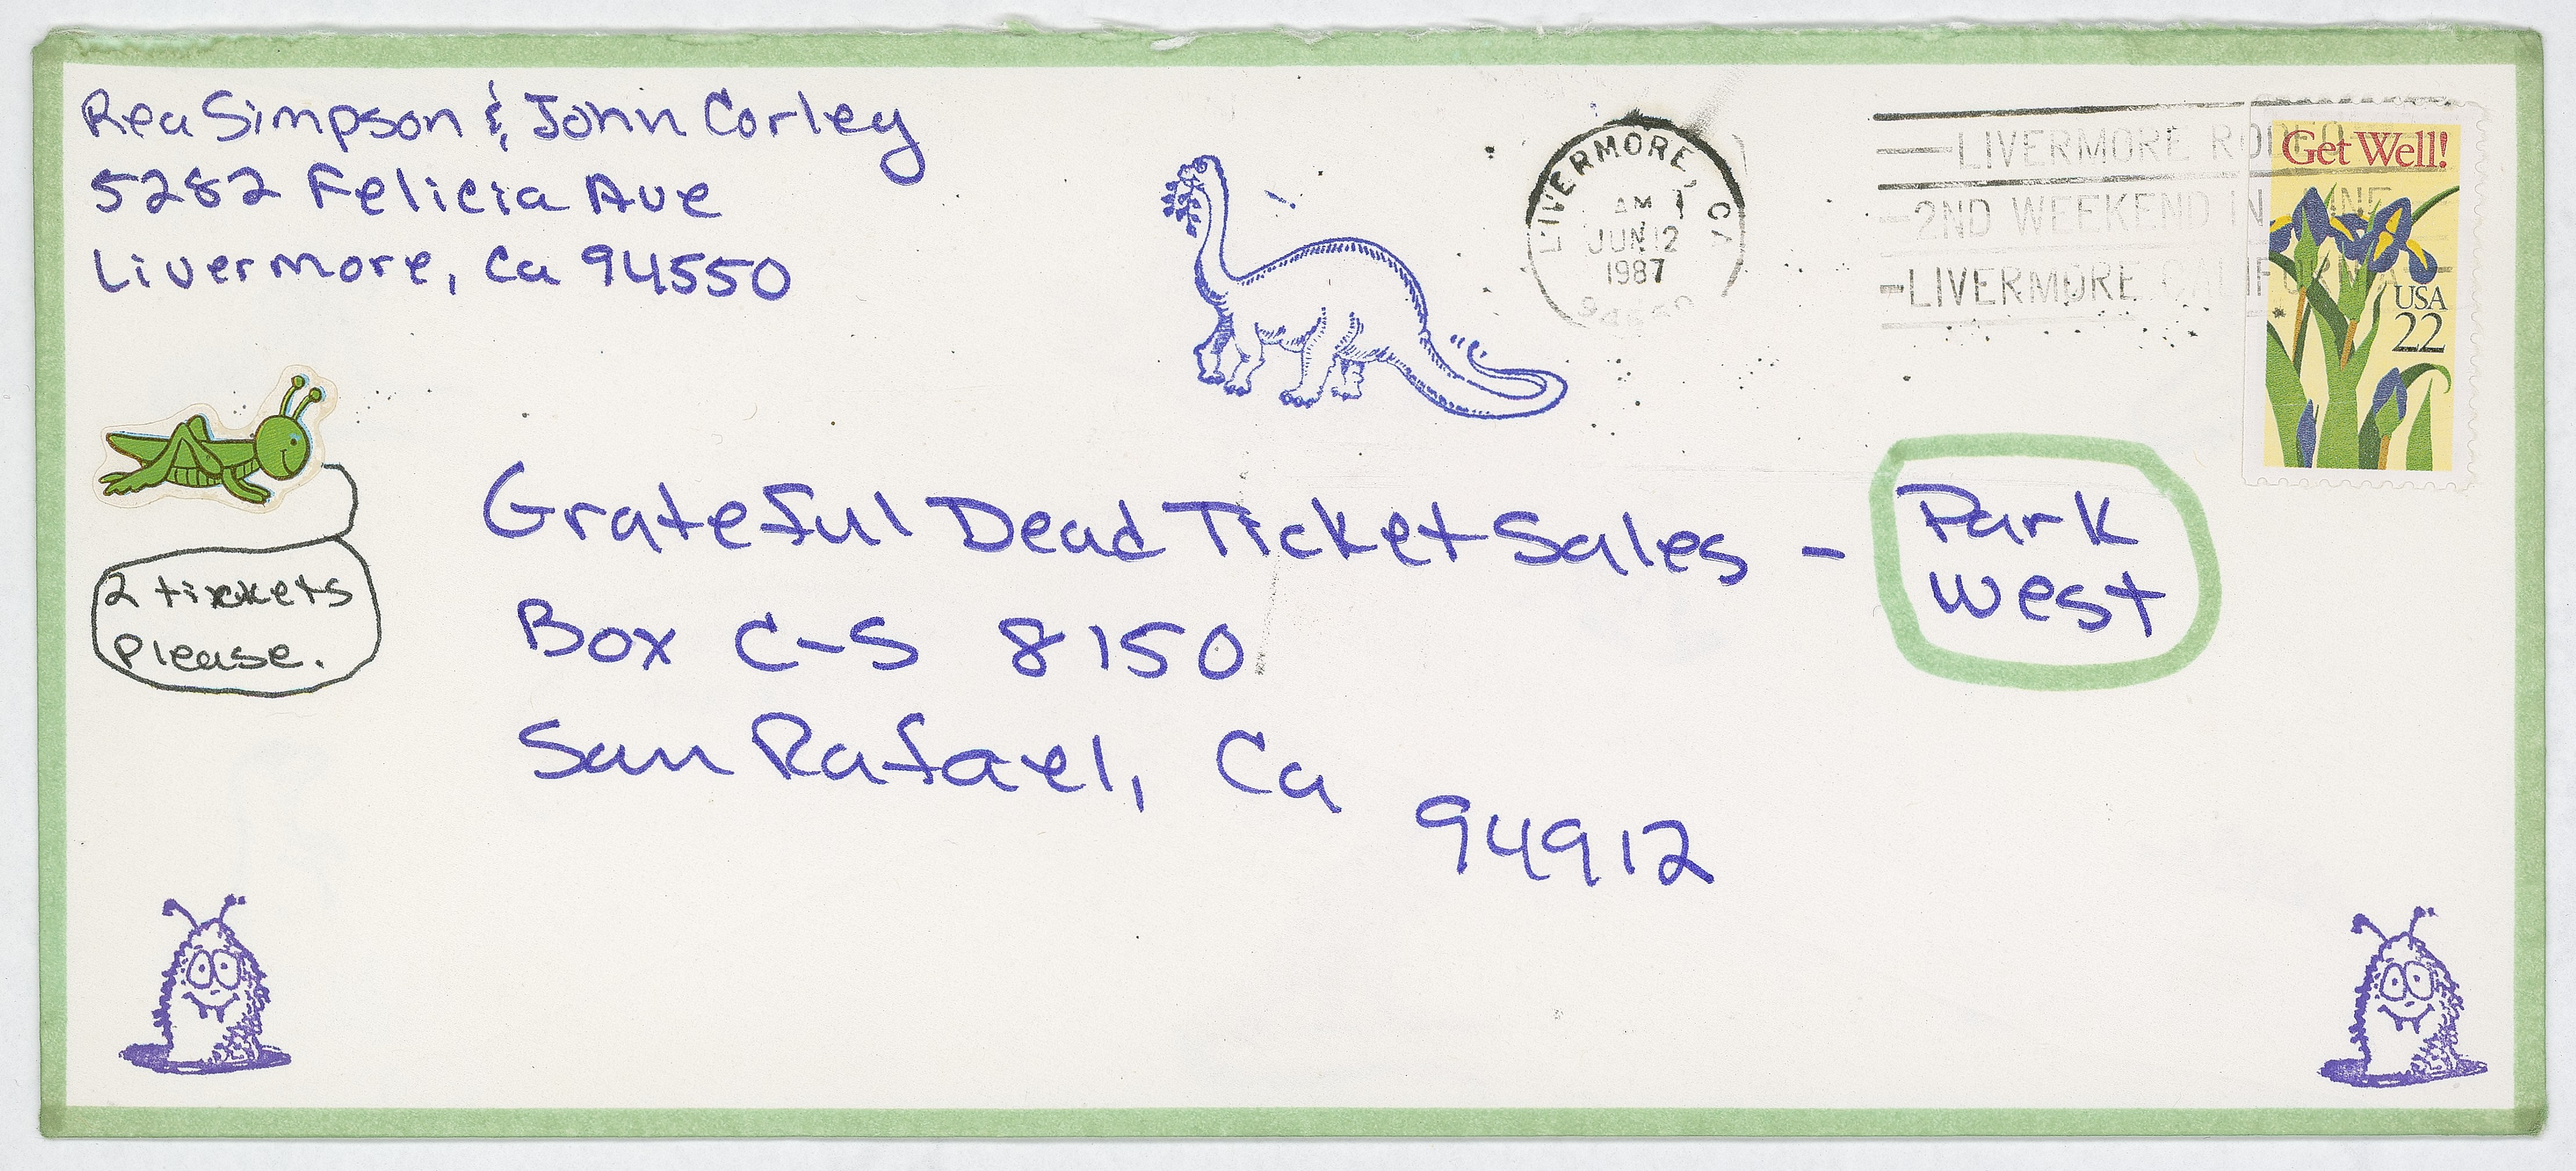 Rea Simpson & John Corley
5282 Felicia Ave
Livermore, Ca 94550
LIVERMORE, CA
AM
JUN 12
1987
LIVERMORE RODEO
2ND WEEKEND IN JUNE
LIVERMORE CALIFORNIA
Get Well!
USA
22
2 tickets
Please.
Grateful Dead Ticket Sales - Park West
Box C-S 8150
San Rafael, Ca
94912